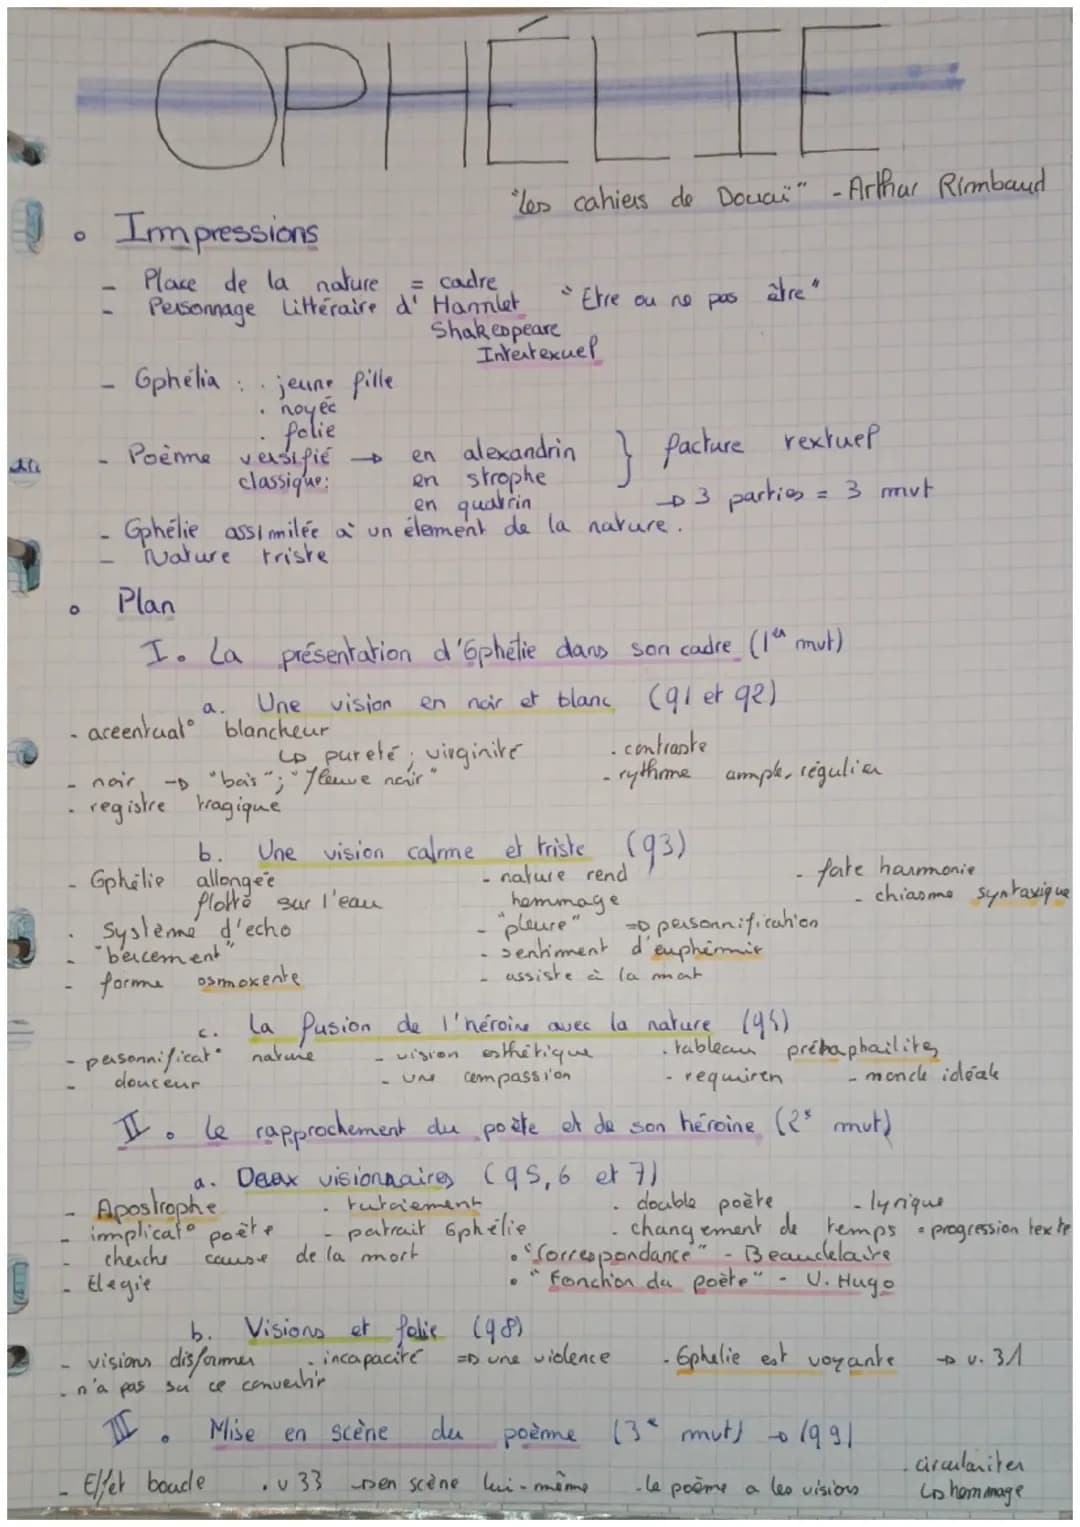 OPHÉLIE
"Les cahiers de Douai" - Arthur Rimbaud
• Impressions
- Place de la nature = cadre
- Personnage Littéraire d'Hamlet "Etre ou ne pas être"
Shakespeare
Intertexuel
- Ophélia : . jeune fille
. noyée
. folie
- Poème versifié → en alexandrin } facture rextuel
classique: en strophe
en quatrin → 3 parties = 3 mvt
- Ophélie assimilée à un élement de la nature.
- Nature triste
• Plan
I. La présentation d'Ophélie dans son cadre (1er mvt)
a. Une vision en noir et blanc (q1 et q2)
- aceentuat° blancheur
↳ pureté, virginité . contraste
- noir → "bois"; "fleuve noir" - rythme ample, régulier
- registre tragique
b. Une vision calme et triste (q3)
- Ophélie allongée - nature rend - forte harmonie
flotte sur l'eau hommage - chiasme syntaxique
. Système d'echo - "pleure" => personnification
- "bercement" - sentiment d'euphémie
- forme osmoxente - assiste à la mort
c. La fusion de l'héroïne avec la nature (q4)
- personnificat° nature - vision esthétique . tableau préhaphailites
- douceur - une compassion - requiren - monde idéale
II. Le rapprochement du poète et de son héroïne (2e mvt)
a. Deux visionnaires (q5, 6 et 7)
- Apostrophe . tutoiement . double poète - lyrique
- implicat° poète - portrait Ophélie . changement de temps = progression texte
- cherche cause de la mort • "Correspondance" - Beaudelaire
- Elegie • "Fonction du poète" - V. Hugo
b. Visions et folie (q8)
- visions disformer . incapacité => une violence . Ophelie est voyante → v. 31
- n'a pas su ce convertir
III. Mise en scène du poème (3e mvt) → (q9)
- Effet boucle . v 33 → en scène lui-même . le poème a les visions . circulariter
↳ hommage